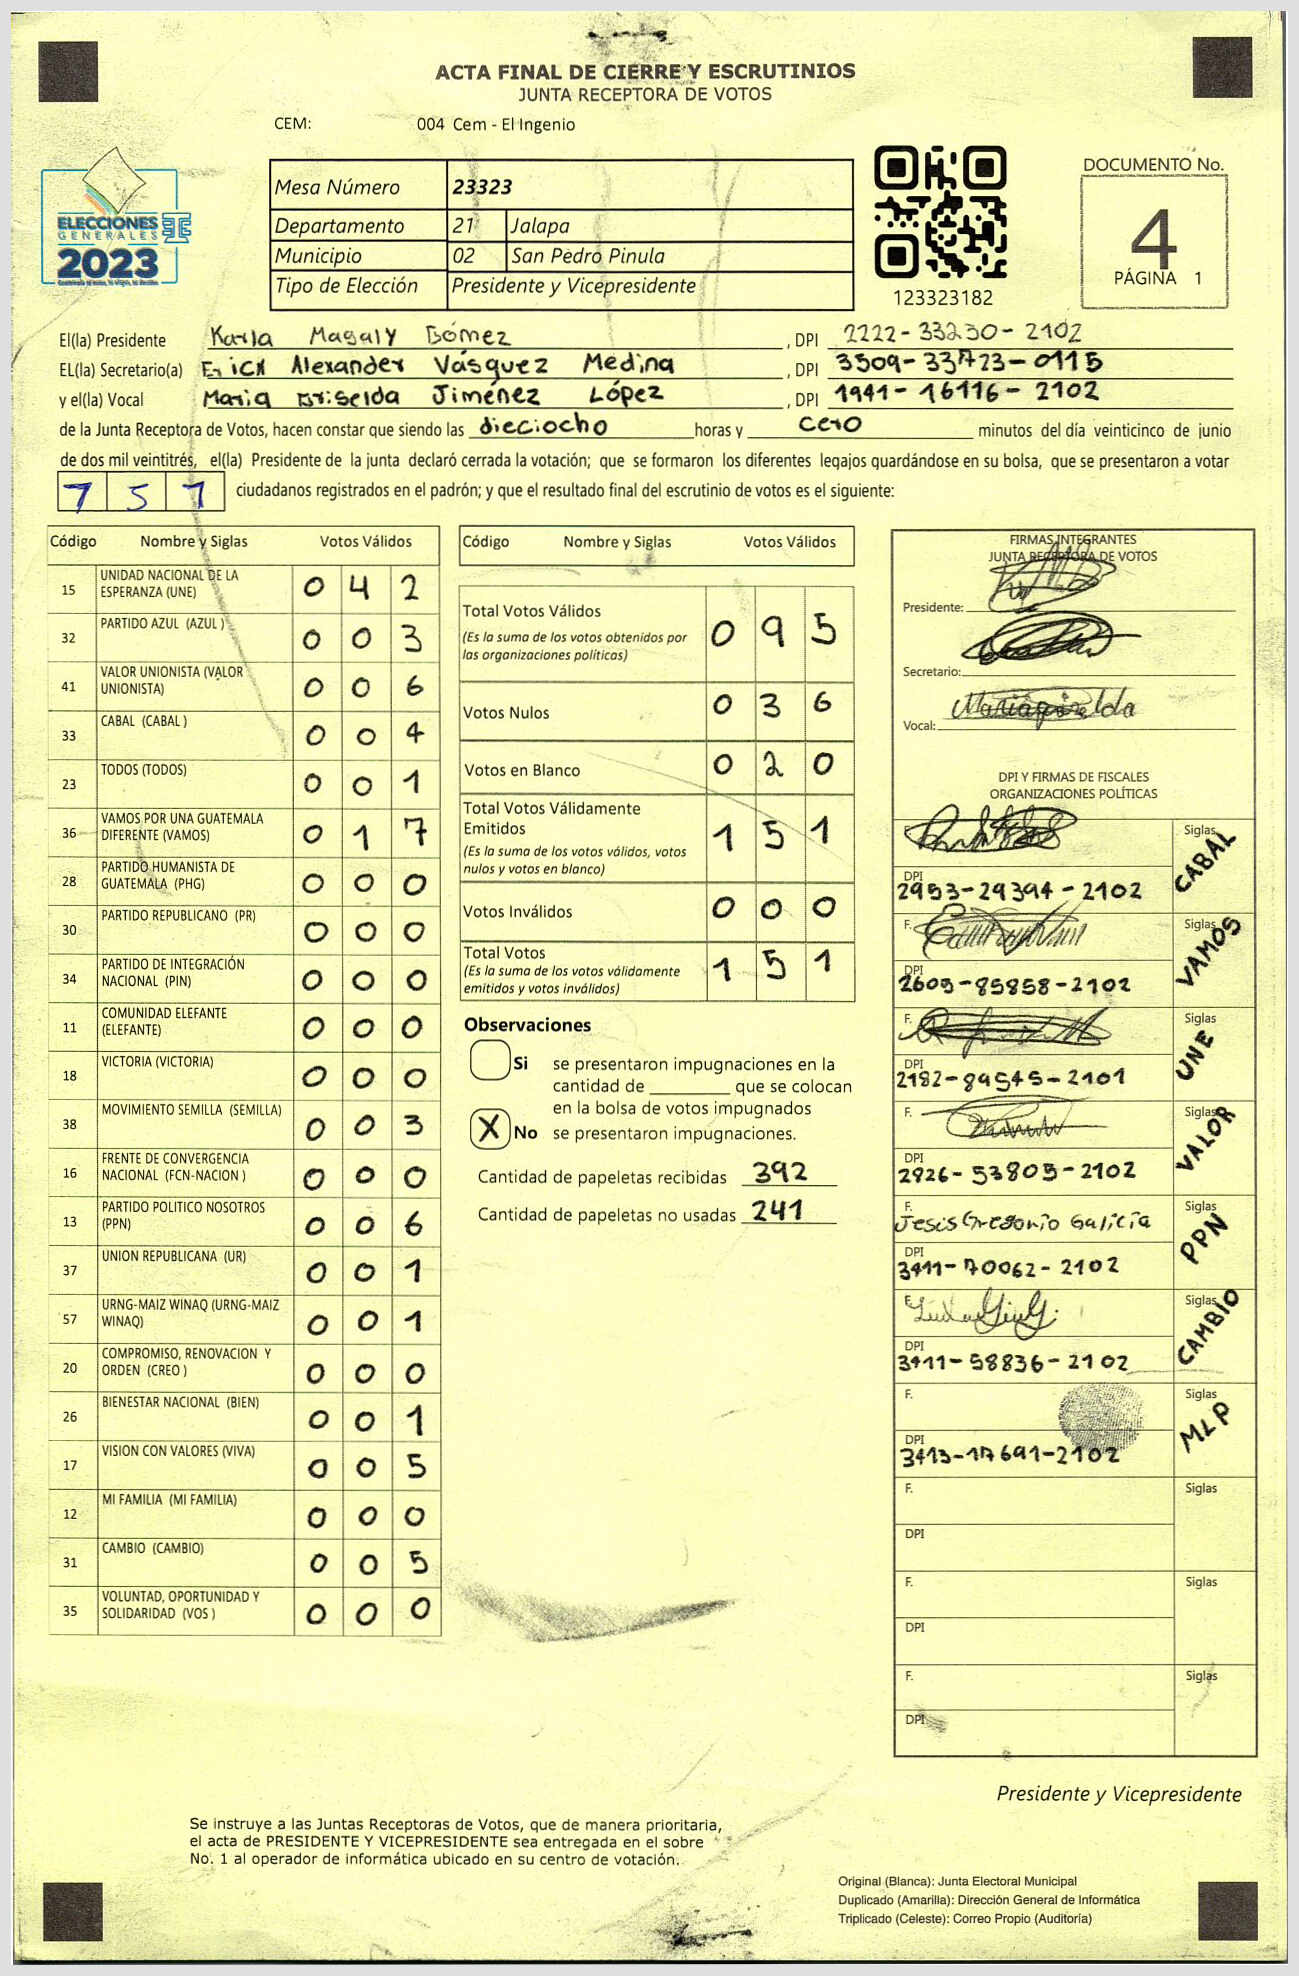 ACTA FINAL DE CIERRE Y ESCRUTINIOS
JUNTA RECEPTORA DE VOTOS
CEM: 004 Cem - El Ingenio
ELECCIONES
GENERALES
2023
Mesa Número 23323
Departamento 21 Jalapa
Municipio 02 San Pedro Pinula
Tipo de Elección Presidente y Vicepresidente
123323182
DOCUMENTO No.
4
PÁGINA 1
El(la) Presidente Karla Magaly Gómez , DPI 2222-33230-2102
EL(la) Secretario(a) Erick Alexander Vásquez Medina , DPI 3509-33723-0115
y el(la) Vocal Maria Griselda Jiménez López , DPI 1941-16116-2102
de la Junta Receptora de Votos, hacen constar que siendo las dieciocho horas y cero minutos del día veinticinco de junio
de dos mil veintitrés, el(la) Presidente de la junta declaró cerrada la votación; que se formaron los diferentes legajos guardándose en su bolsa, que se presentaron a votar
ciudadanos registrados en el padrón; y que el resultado final del escrutinio de votos es el siguiente:
Código Nombre y Siglas Votos Válidos
15 UNIDAD NACIONAL DE LA ESPERANZA (UNE) 0 4 2
32 PARTIDO AZUL (AZUL ) 0 0 3
41 VALOR UNIONISTA (VALOR UNIONISTA) 0 0 6
33 CABAL (CABAL ) 0 0 4
23 TODOS (TODOS) 0 0 1
36 VAMOS POR UNA GUATEMALA DIFERENTE (VAMOS) 0 1 7
28 PARTIDO HUMANISTA DE GUATEMALA (PHG) 0 0 0
30 PARTIDO REPUBLICANO (PR) 0 0 0
34 PARTIDO DE INTEGRACIÓN NACIONAL (PIN) 0 0 0
11 COMUNIDAD ELEFANTE (ELEFANTE) 0 0 0
18 VICTORIA (VICTORIA) 0 0 0
38 MOVIMIENTO SEMILLA (SEMILLA) 0 0 3
16 FRENTE DE CONVERGENCIA NACIONAL (FCN-NACION ) 0 0 0
13 PARTIDO POLITICO NOSOTROS (PPN) 0 0 6
37 UNION REPUBLICANA (UR) 0 0 1
57 URNG-MAIZ WINAQ (URNG-MAIZ WINAQ) 0 0 1
20 COMPROMISO, RENOVACION Y ORDEN (CREO ) 0 0 0
26 BIENESTAR NACIONAL (BIEN) 0 0 1
17 VISION CON VALORES (VIVA) 0 0 5
12 MI FAMILIA (MI FAMILIA) 0 0 0
31 CAMBIO (CAMBIO) 0 0 5
35 VOLUNTAD, OPORTUNIDAD Y SOLIDARIDAD (VOS ) 0 0 0
Código Nombre y Siglas Votos Válidos
Total Votos Válidos 0 9 5
(Es la suma de los votos obtenidos por
las organizaciones políticas)
Votos Nulos 0 3 6
Votos en Blanco 0 2 0
Total Votos Válidamente
Emitidos 1 5 1
(Es la suma de los votos válidos, votos
nulos y votos en blanco)
Votos Inválidos 0 0 0
Total Votos 1 5 1
(Es la suma de los votos válidamente
emitidos y votos inválidos)
Observaciones
Si se presentaron impugnaciones en la
cantidad de ________ que se colocan
en la bolsa de votos impugnados
X No se presentaron impugnaciones.
Cantidad de papeletas recibidas 392
Cantidad de papeletas no usadas 241
FIRMAS INTEGRANTES
JUNTA RECEPTORA DE VOTOS
Presidente:
Secretario:
Vocal:
DPI Y FIRMAS DE FISCALES
ORGANIZACIONES POLÍTICAS
Siglas CABAL
DPI
2953-29394-2102
F. Siglas VAMOS
DPI
2609-85858-2102
F. Siglas UNE
DPI
2182-89545-2101
F. Siglas VALOR
DPI
2826-53805-2102
F. Siglas PPN
Jesis Gregorio Galicia
DPI
3411-70062-2102
F. Siglas CAMBIO
DPI
3411-58836-2102
F. Siglas MLP
DPI
3413-17691-2102
F. Siglas
DPI
F. Siglas
DPI
F. Siglas
DPI
Presidente y Vicepresidente
Se instruye a las Juntas Receptoras de Votos, que de manera prioritaria,
el acta de PRESIDENTE Y VICEPRESIDENTE sea entregada en el sobre
No. 1 al operador de informática ubicado en su centro de votación.
Original (Blanca): Junta Electoral Municipal
Duplicado (Amarilla): Dirección General de Informática
Triplicado (Celeste): Correo Propio (Auditoría)